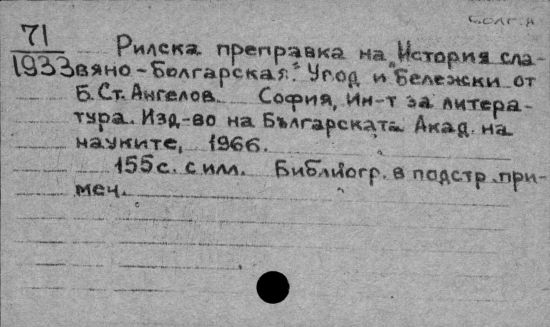 Болг. А
71
1933
Рилска преправка на „История сла-
вяно-Болгарская“. Увод и бележки от
Б. Ст. Ангелов. София, Ин-т за литера-
тура. Изд-во на Българската Акад. на
науките, 1966.
155 с. с илл. Библиогр. в подстр. при-
меч.